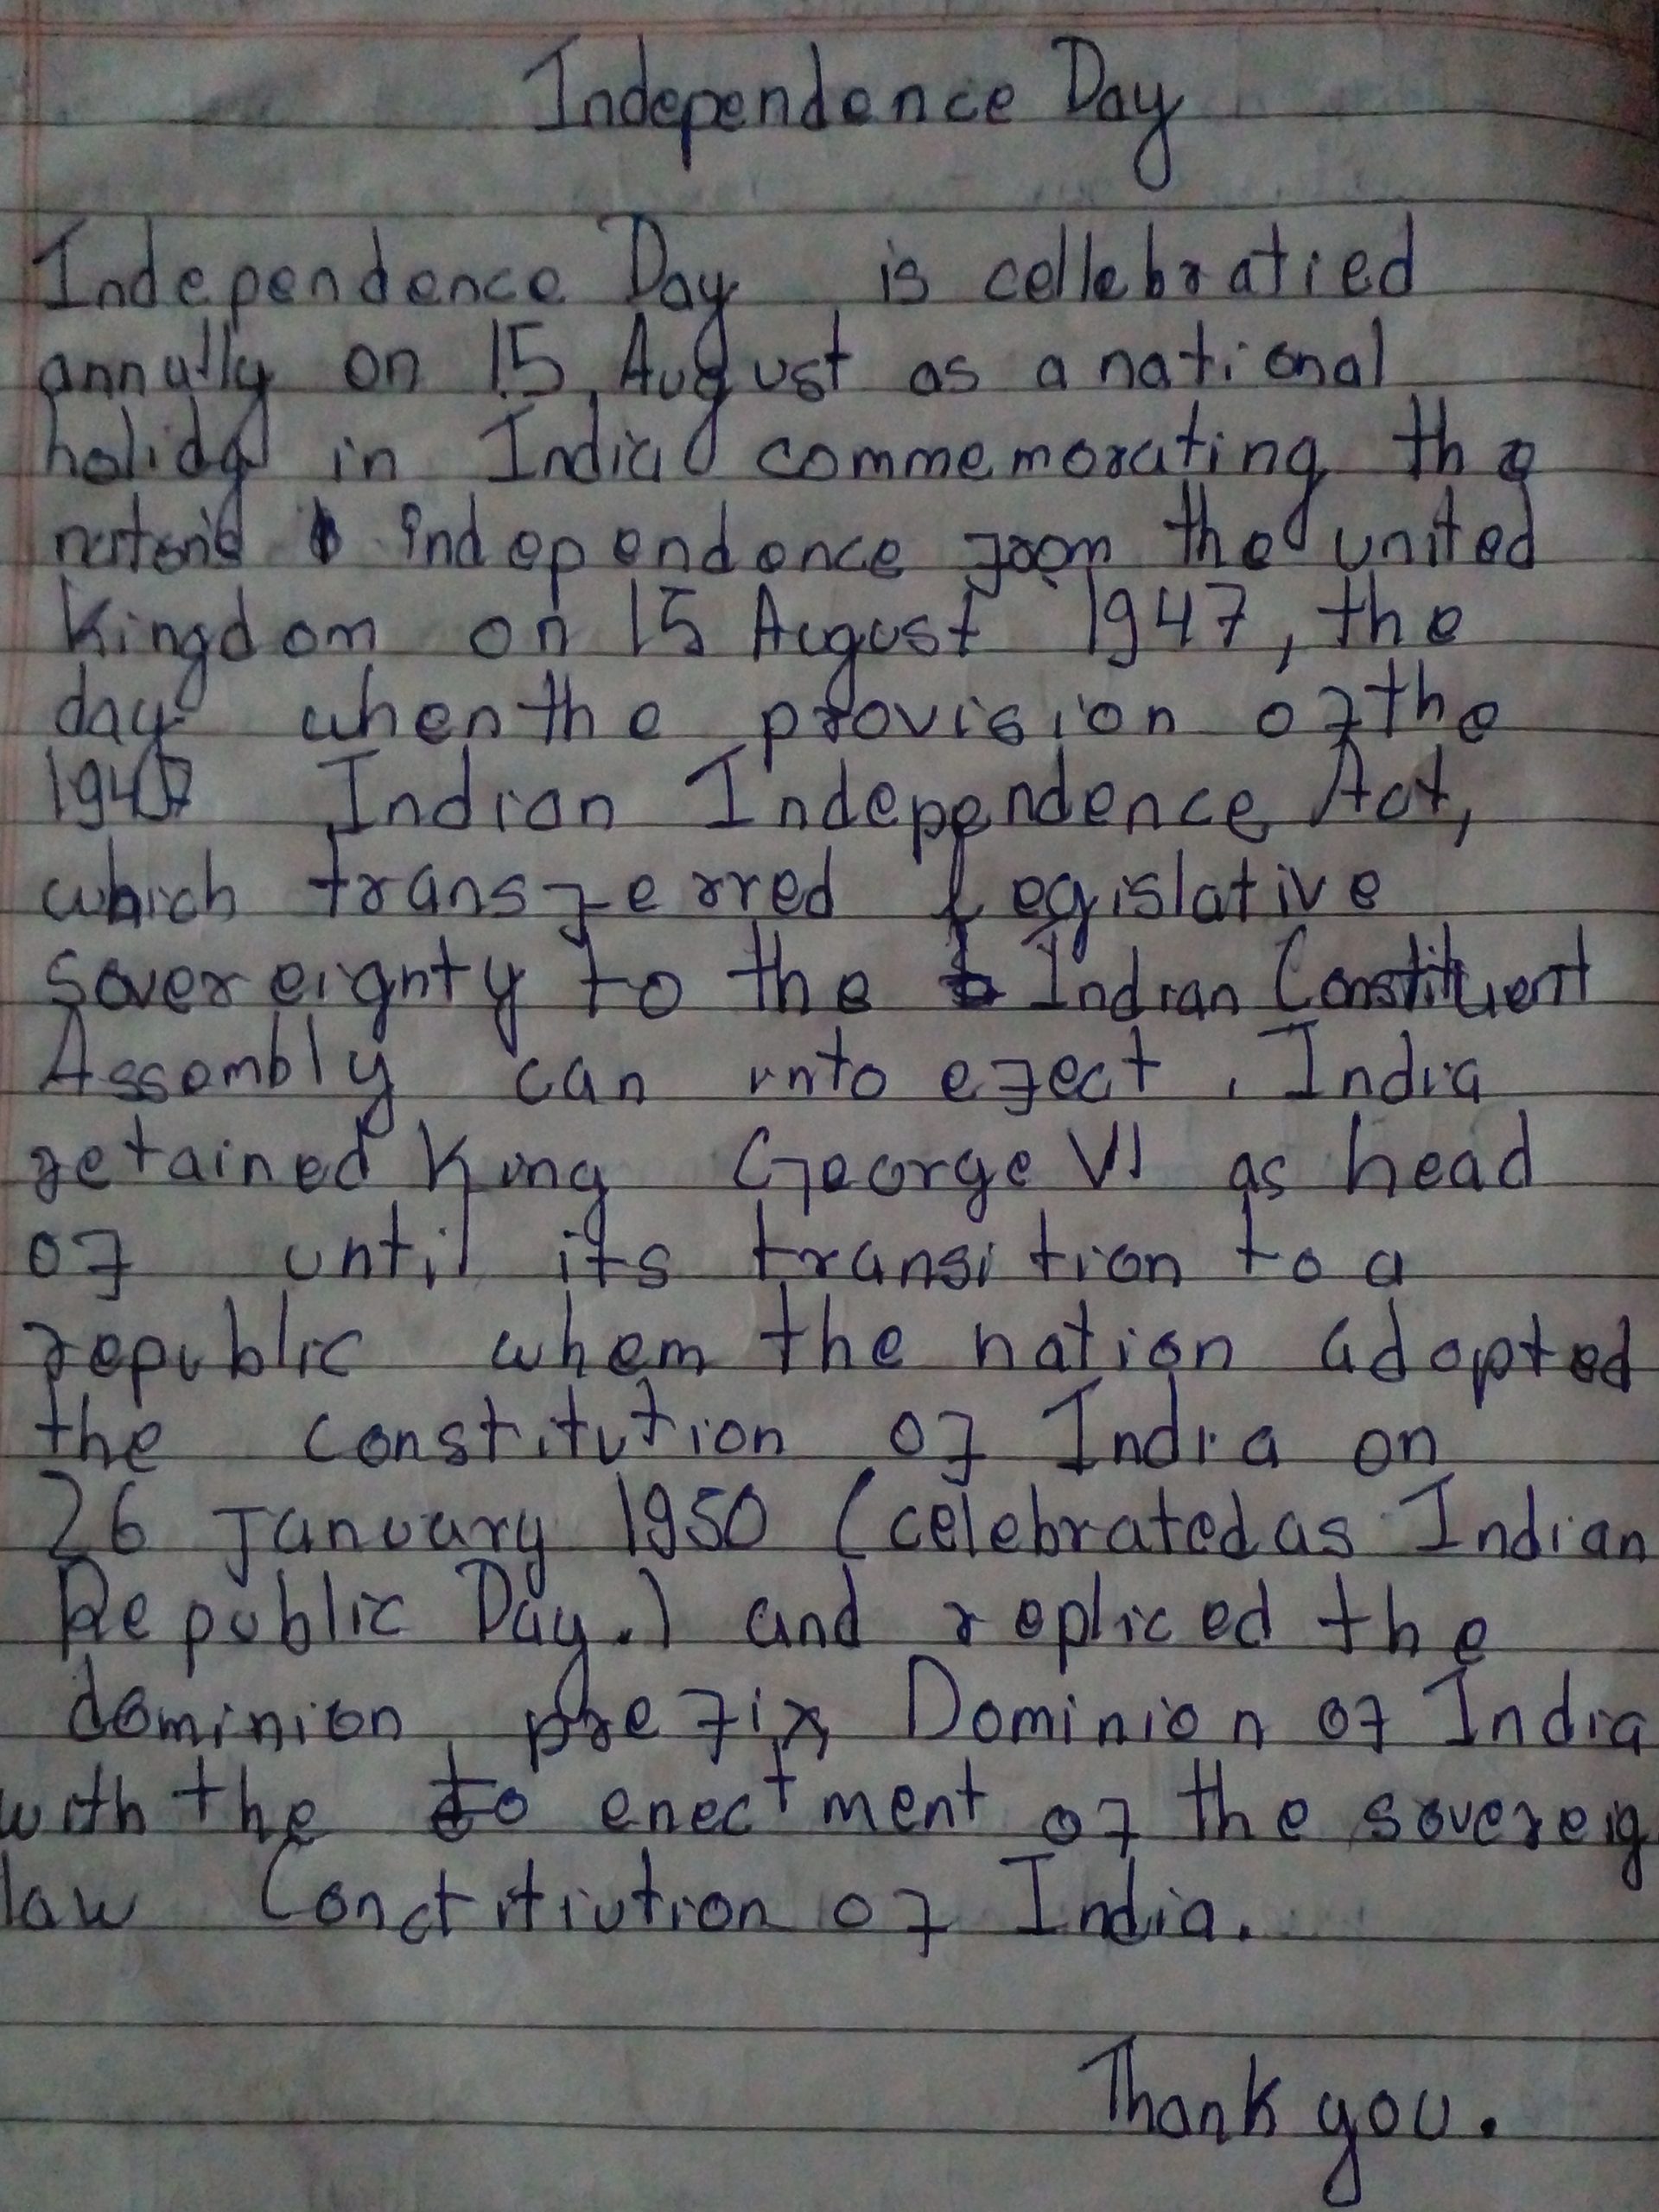 Independence Day
Independence Day is cellebratied
annully on 15 August as a national
holiday in India commemorating the
independence from the united
Kingdom on 15 August 1947, the
day when the provision of the
1947 Indian Independence Act,
which transferred Legislative
sovereignty to the Indian Constituent
Assembly can into efect. India
retained King George VI as head
of until its transition to a
republic whem the nation adopted
the constitution of India on
26 January 1950 (celebrated as Indian
Republic Day.) and repliced the
dominion prefix Dominion of India
with the to enectment of the sovereig
law Conctitiution of India.
Thank you.